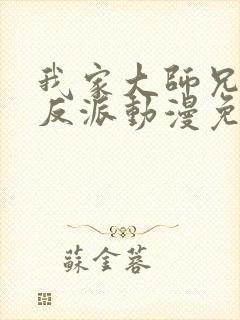 我家大師兄
反派動漫免
蘇金蓉